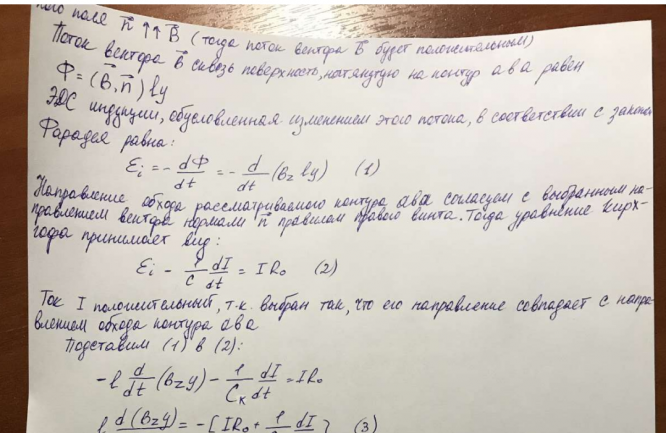 ного поле n⃗ ↑↑ B⃗ (тогда поток вектора B⃗ будет положительным)
Поток вектора B⃗ сквозь поверхность, натянутую на контур ава равен
Ф = (B⃗, n⃗) ly
ЭДС индукции, обусловленная изменением этого потока, в соответствии с законом
Фарадея равна:
Ɛi = - dФ/dt = - d/dt (Bz ly) (1)
Направление обхода рассматриваемого контура ава согласуем с выбранным на-
правлением вектора нормали n⃗ правилом правого винта. Тогда уравнение Кирх-
гофа принимает вид:
Ɛi - 1/C dI/dt = IR₀ (2)
Ток I положительный, т.к. выбран так, что его направление совпадает с напра-
влением обхода контура ава
Подставим (1) в (2):
-l d/dt (Bzy) - 1/Cк dI/dt = IR₀
l d(Bzy) = -[IR₀ + 1 dI ] (3)